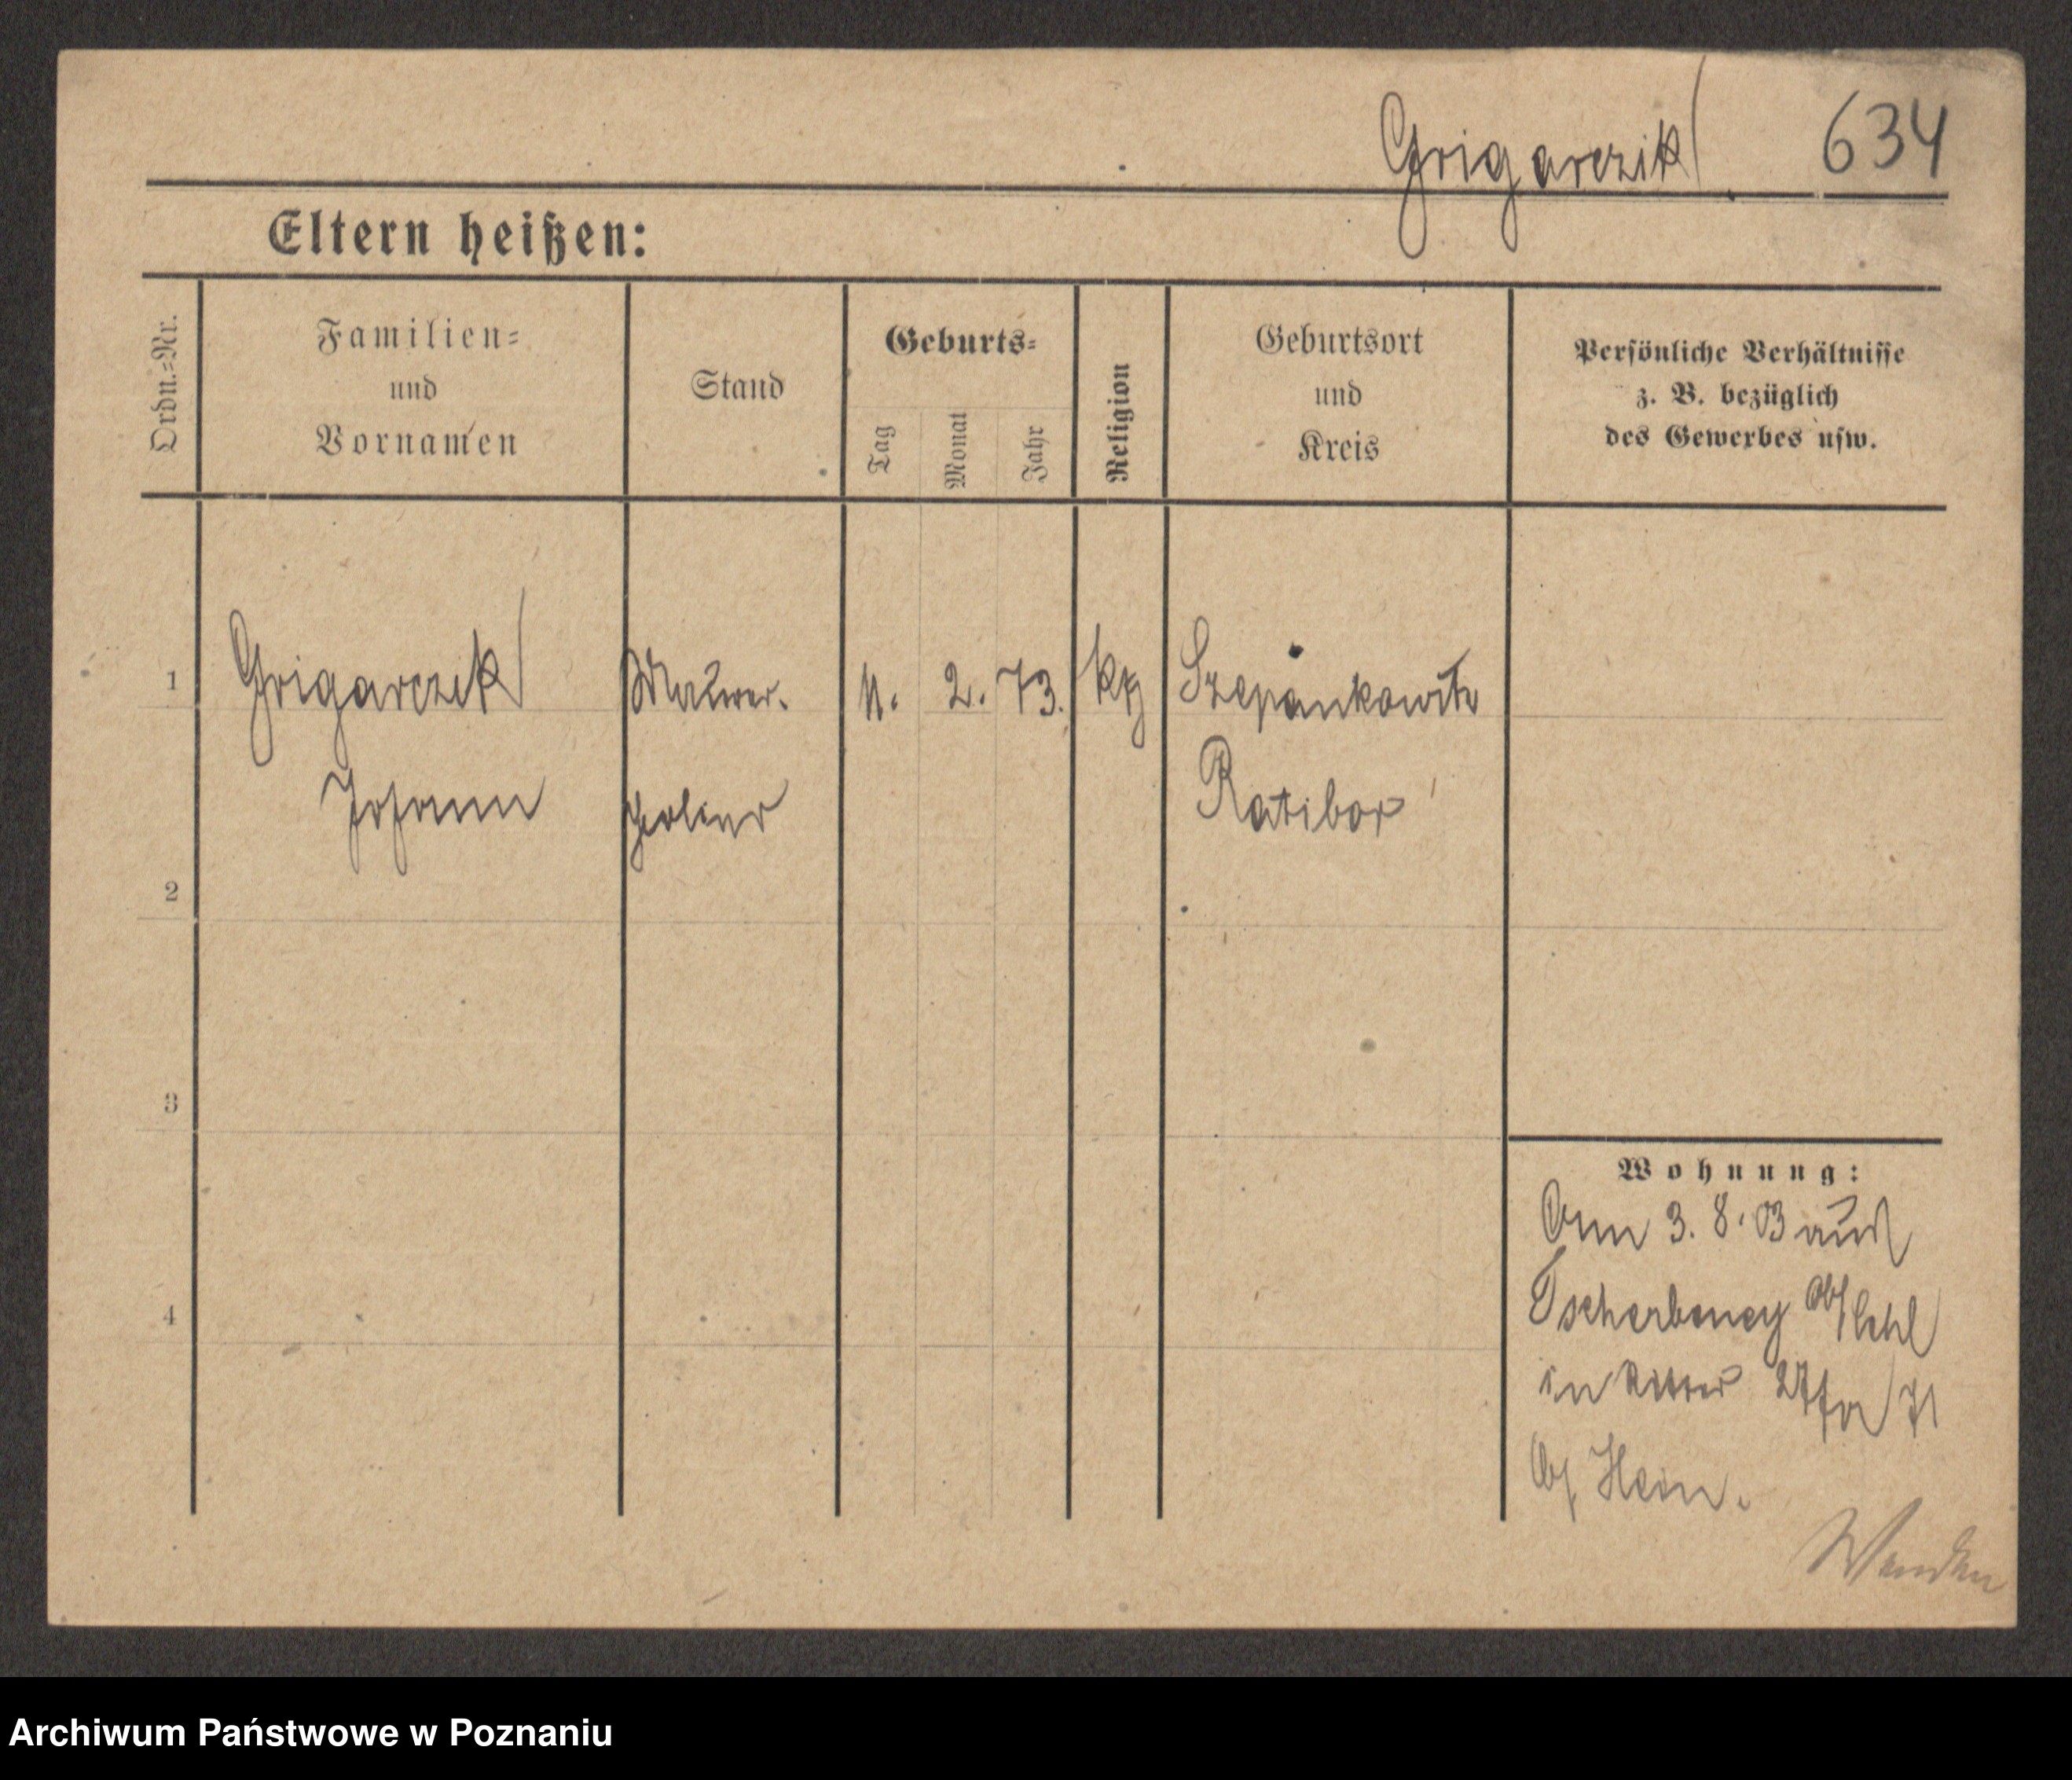 Grigarczik 634
Eltern heißen:
Ordn.=Nr.
Familien=
und
Vornamen
Stand
Geburts=
Tag
Monat
Jahr
Religion
Geburtsort
und
Kreis
Persönliche Verhältnisse
z. B. bezüglich
des Gewerbes usw.
1 Grigarczik Maurer. 11. 2. 73. Szepankowitz
Johann polier Ratibor
2
3
4
Wohnung:
3. 8. 03 aus
Tscherbeney
in Ritter 71
b/ Hein.
Archiwum Państwowe w Poznaniu